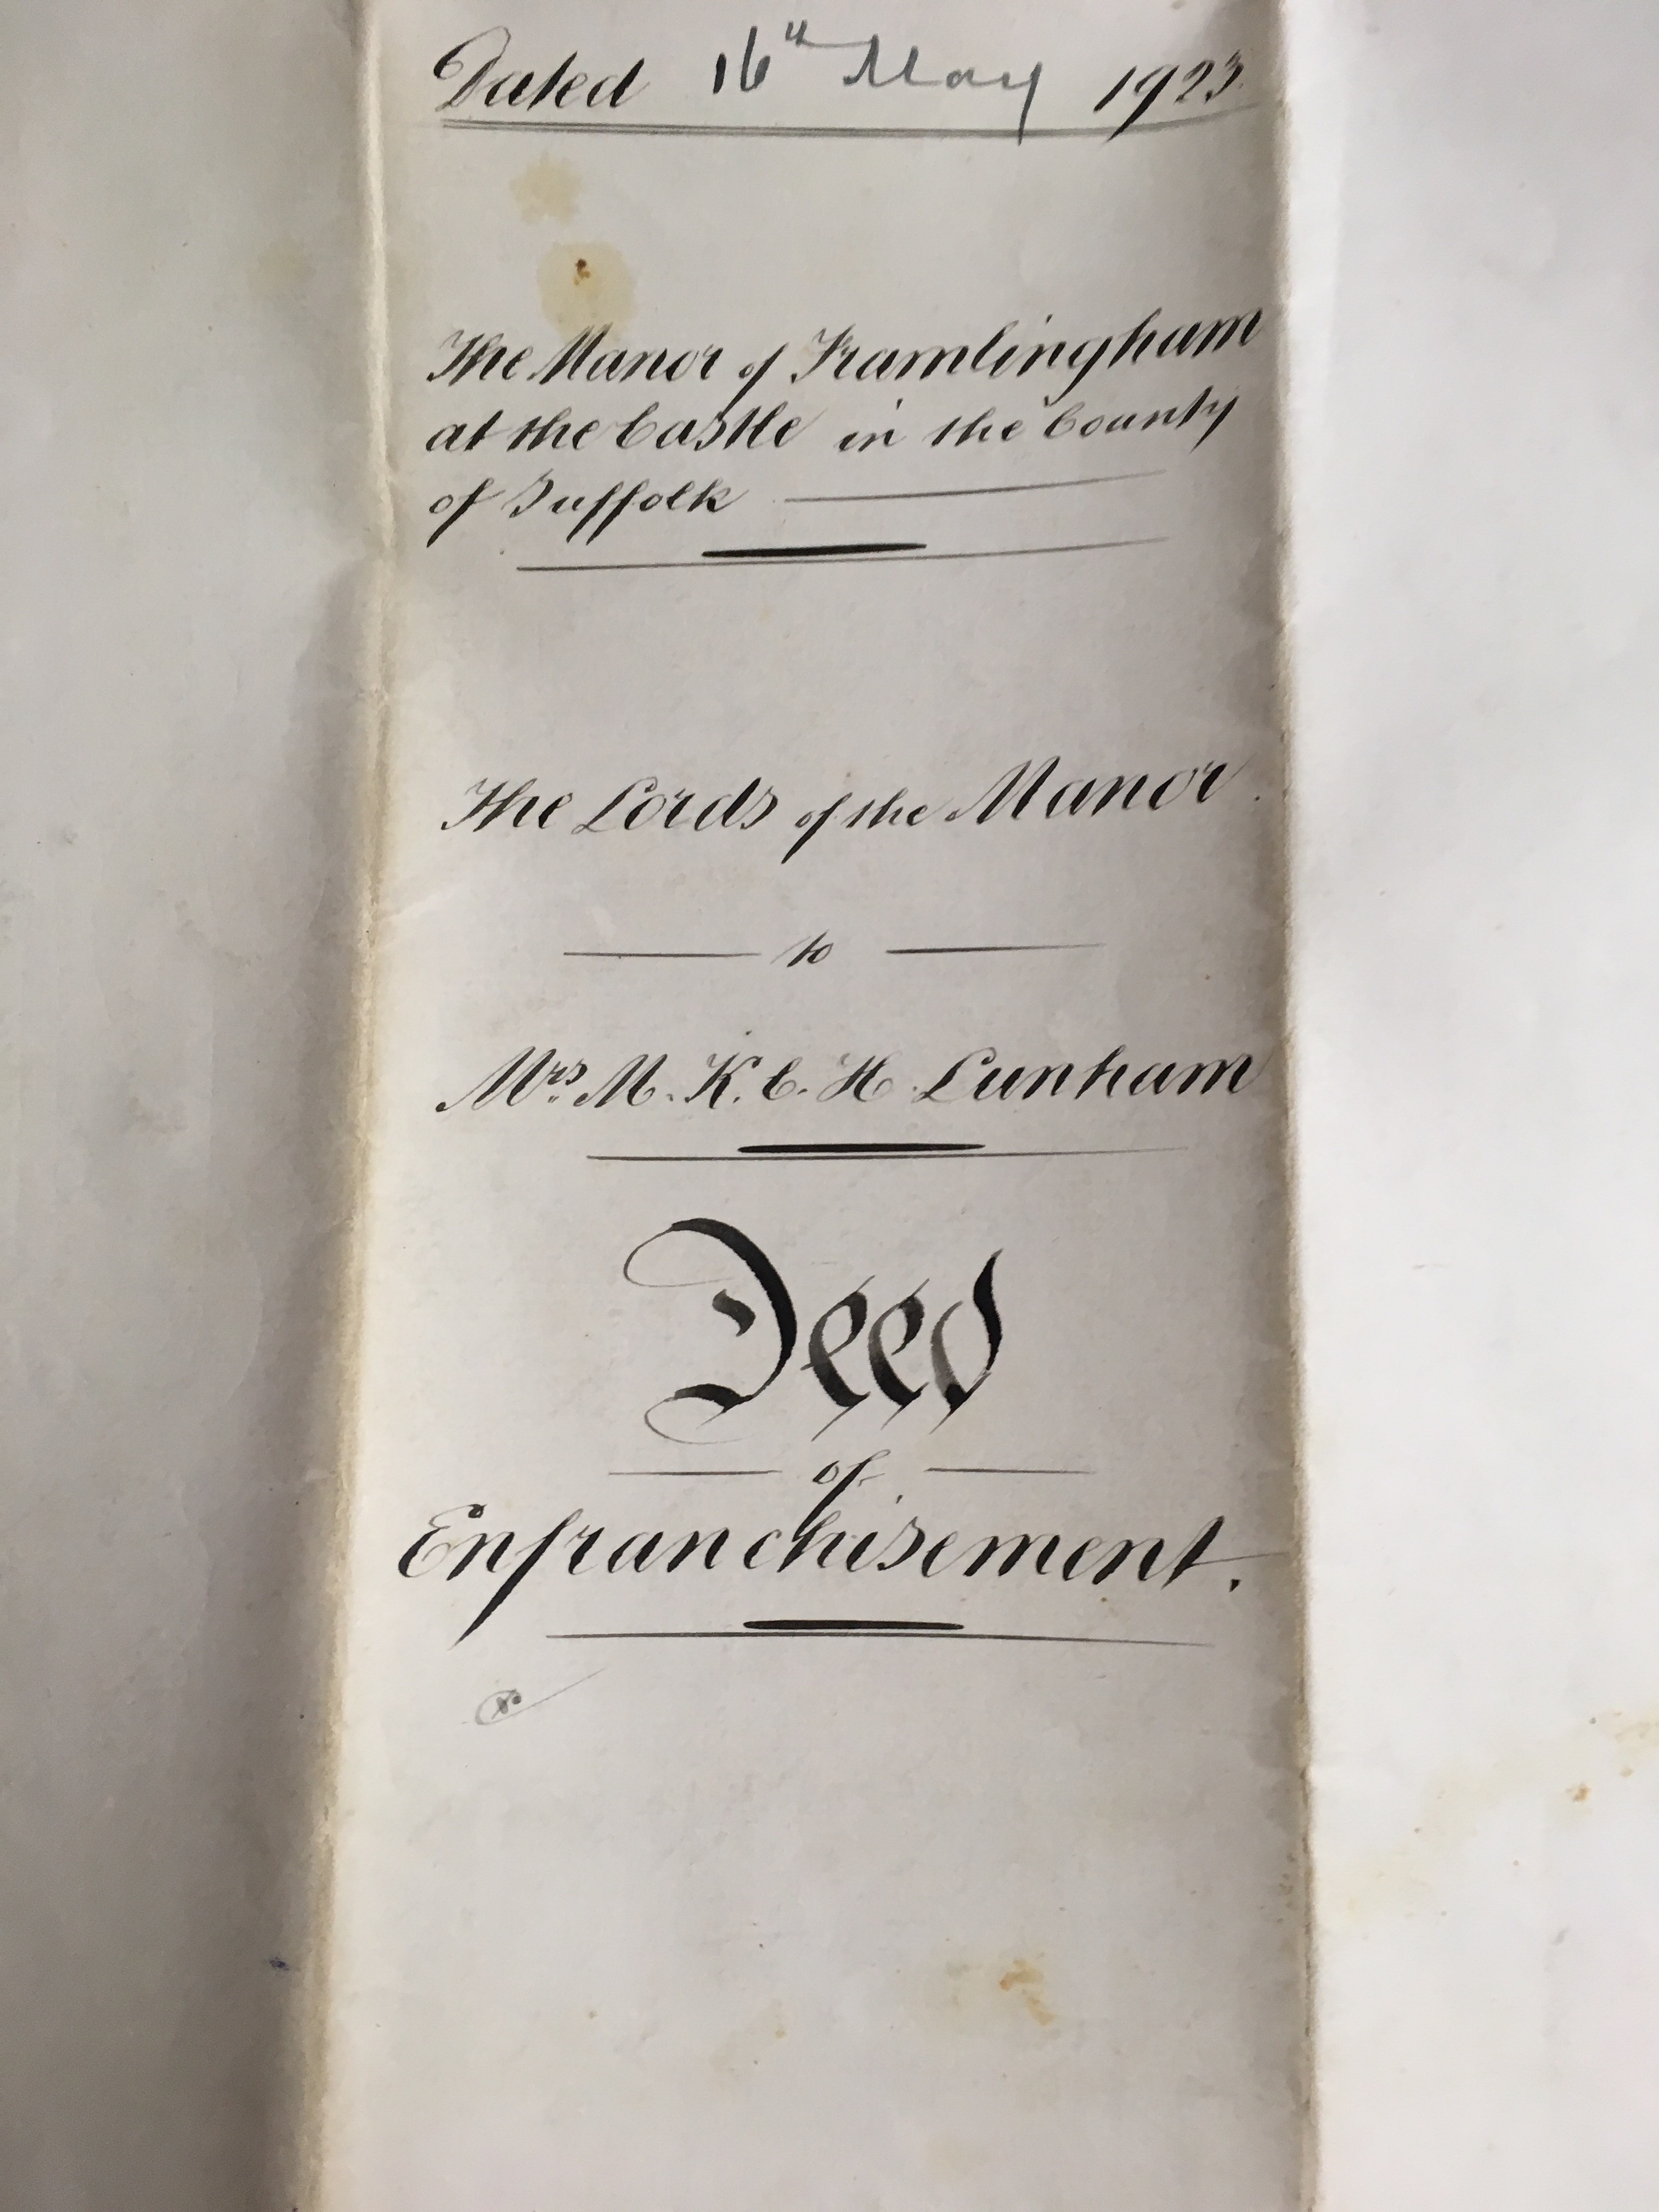 Dated 16th May 1923.
The Manor of Framlingham
at the Castle in the County
of Suffolk
The Lords of the Manor.
to
Mrs. M. K. C. H. Lunham
Deed
of
Enfranchisement.